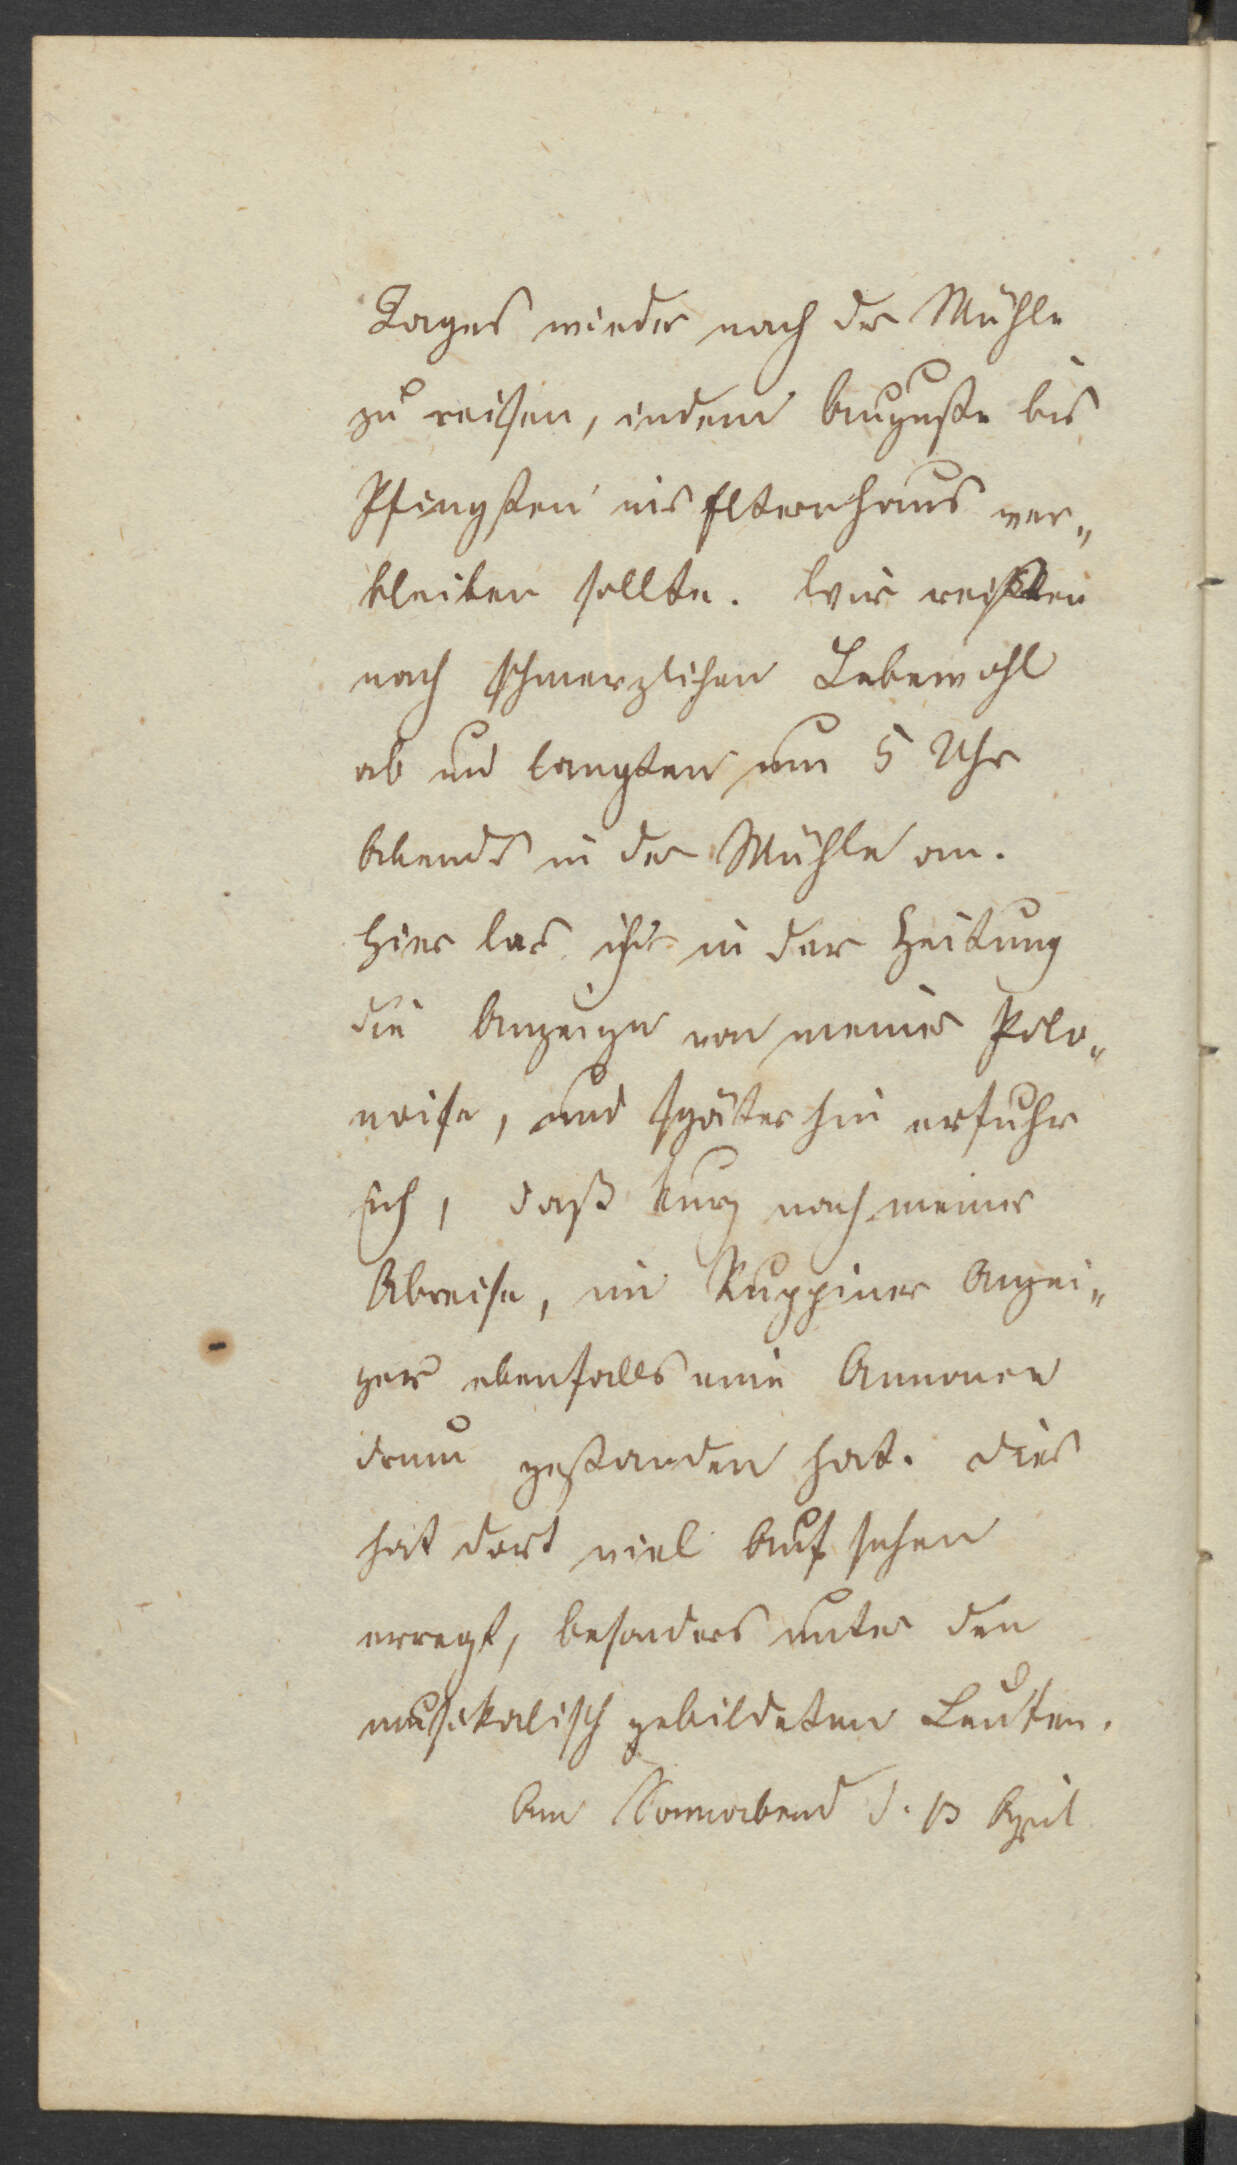 Tages wieder nach der Mühle
zu reisen, indem Auguste bis
Pfingsten im Elternhaus ver„
bleiben sollte. Wir reisten
nach schmerzlichen Lebewohl
ab und langten um 5 Uhr
Abends in der Mühle an.
Hier las ich in der Zeitung
die Anzeige von meiner Polo„
noise, und späterhin erfuhr
ich, daß kurz nach meiner
Abreise, im Ruppiner Anzei„
ger ebenfalls eine Annonce
drum gestanden hat. Dies
hat dort viel Aufsehen
erregt, besonders unter den
musikalisch gebildeten Leuten.
Am Sonnabend d. 13 April